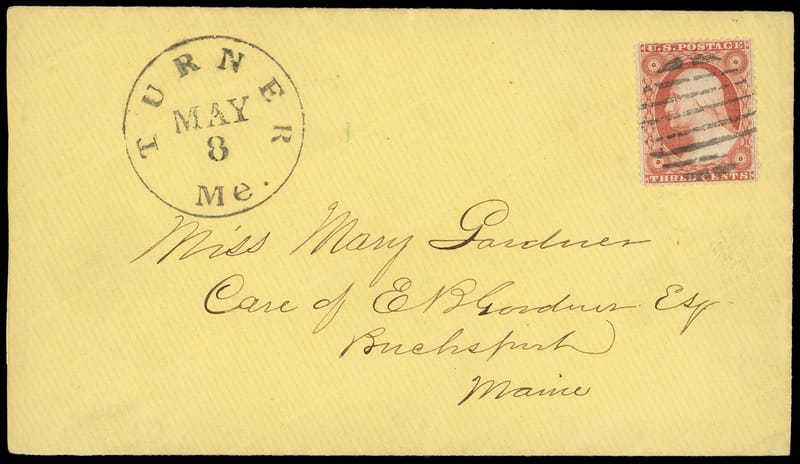 TURNER
MAY
8
Me.
U.S. POSTAGE
THREE CENTS
Miss Mary Gardner
Care of E B Gardner Esq
Bucksport
Maine